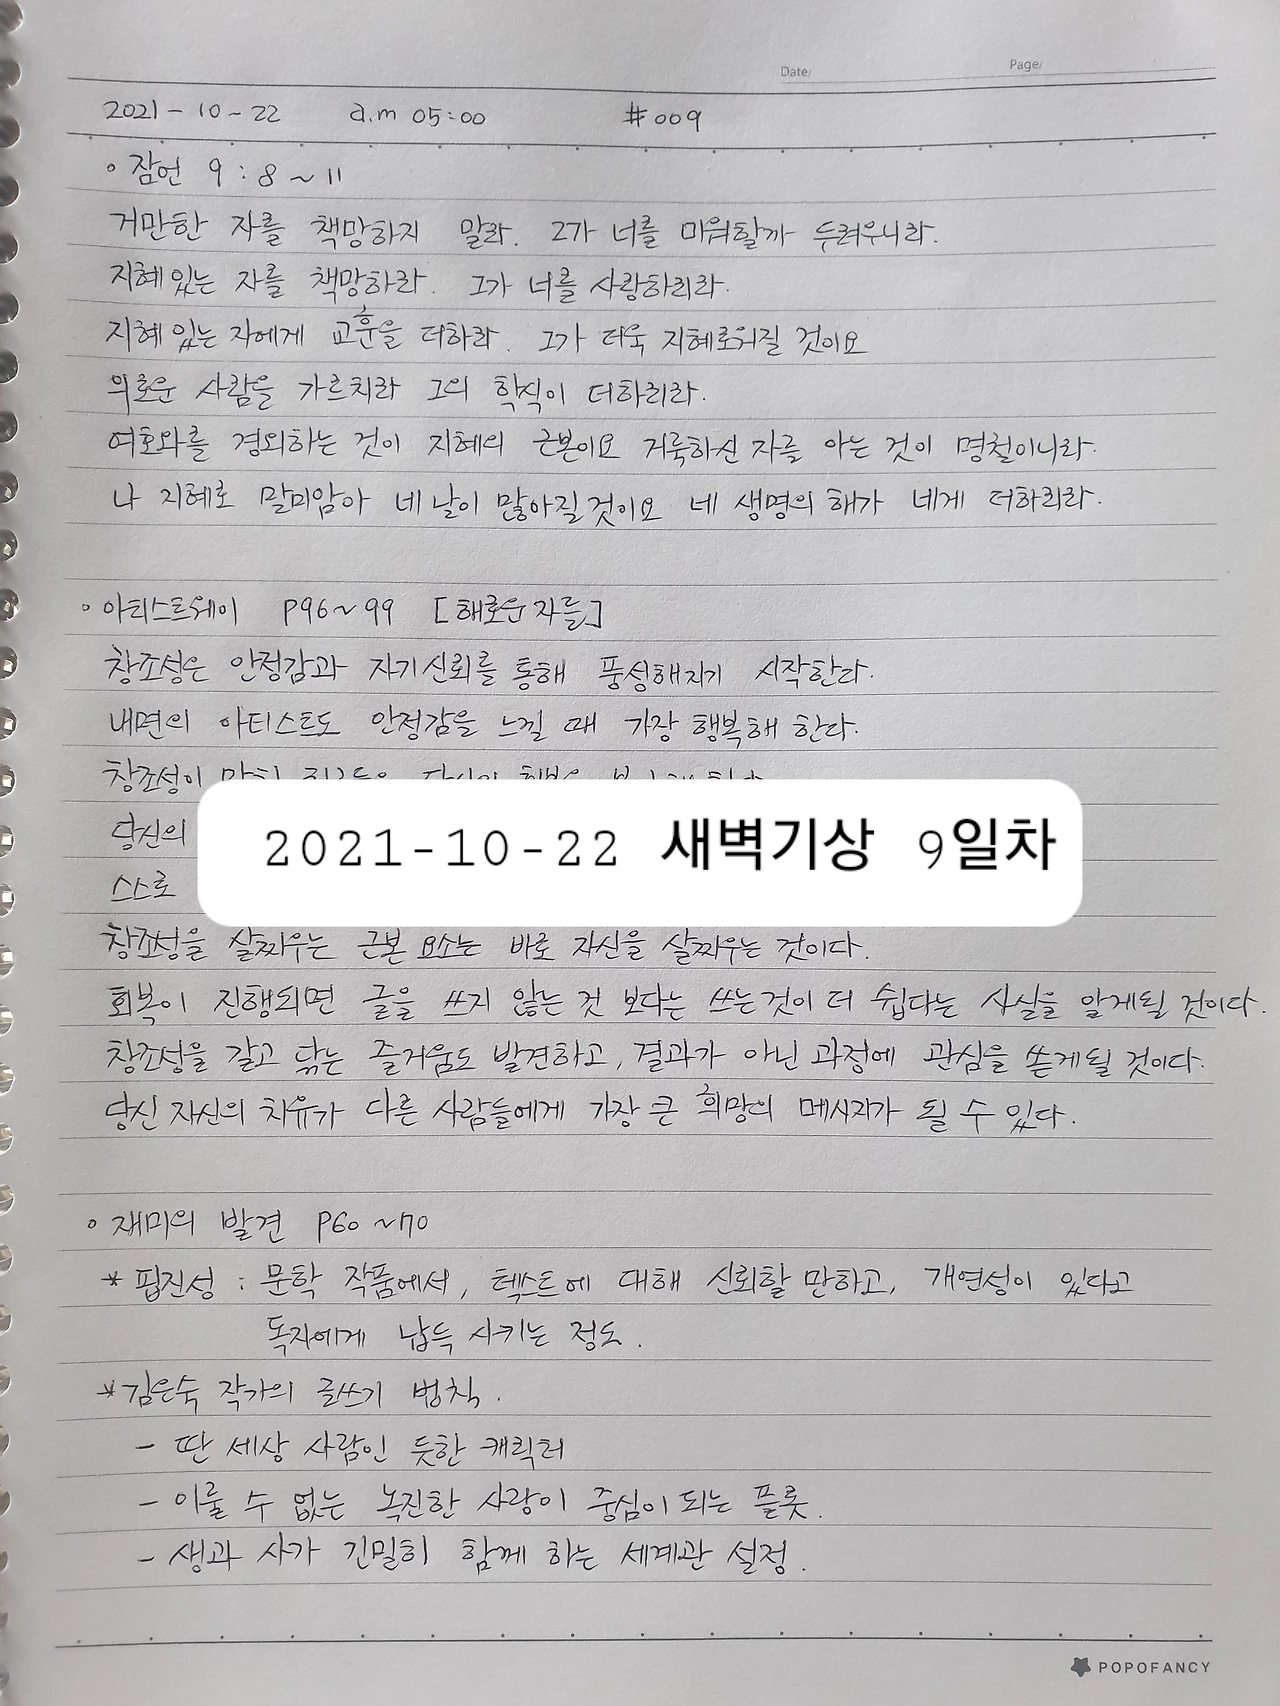 Date/ Page/
2021-10-22 a.m 05:00 #009
◦ 잠언 9:8~11
거만한 자를 책망하지 말라. 그가 너를 미워할까 두려우니라.
지혜있는 자를 책망하라. 그가 너를 사랑하리라.
지혜있는 자에게 교훈을 더하라. 그가 더욱 지혜로워질 것이요
의로운 사람을 가르치라 그의 학식이 더하리라.
여호와를 경외하는 것이 지혜의 근본이요 거룩하신 자를 아는 것이 명철이니라.
나 지혜로 말미암아 네 날이 많아질것이요 네 생명의 해가 네게 더하리라.
◦ 아티스트웨이 P96~99 [해로운 자들]
창조성은 안정감과 자기신뢰를 통해 풍성해지기 시작한다.
내면의 아티스트도 안정감을 느낄 때 가장 행복해 한다.
창조성이
당신의
스스로
2021-10-22 새벽기상 9일차
창조성을 살찌우는 근본 요소는 바로 자신을 살찌우는 것이다.
회복이 진행되면 글을 쓰지 않는 것 보다는 쓰는것이 더 쉽다는 사실을 알게될 것이다.
창조성을 갈고 닦는 즐거움도 발견하고, 결과가 아닌 과정에 관심을 쏟게될 것이다.
당신 자신의 치유가 다른 사람들에게 가장 큰 희망의 메시지가 될 수 있다.
◦ 재미의 발견 P60~70
* 핍진성 : 문학 작품에서, 텍스트에 대해 신뢰할 만하고, 개연성이 있다고
독자에게 납득 시키는 정도.
* 김은숙 작가의 글쓰기 법칙.
- 딴 세상 사람인 듯한 캐릭터
- 이룰 수 없는 녹진한 사랑이 중심이 되는 플롯.
- 생과 사가 긴밀히 함께 하는 세계관 설정.
POPOFANCY